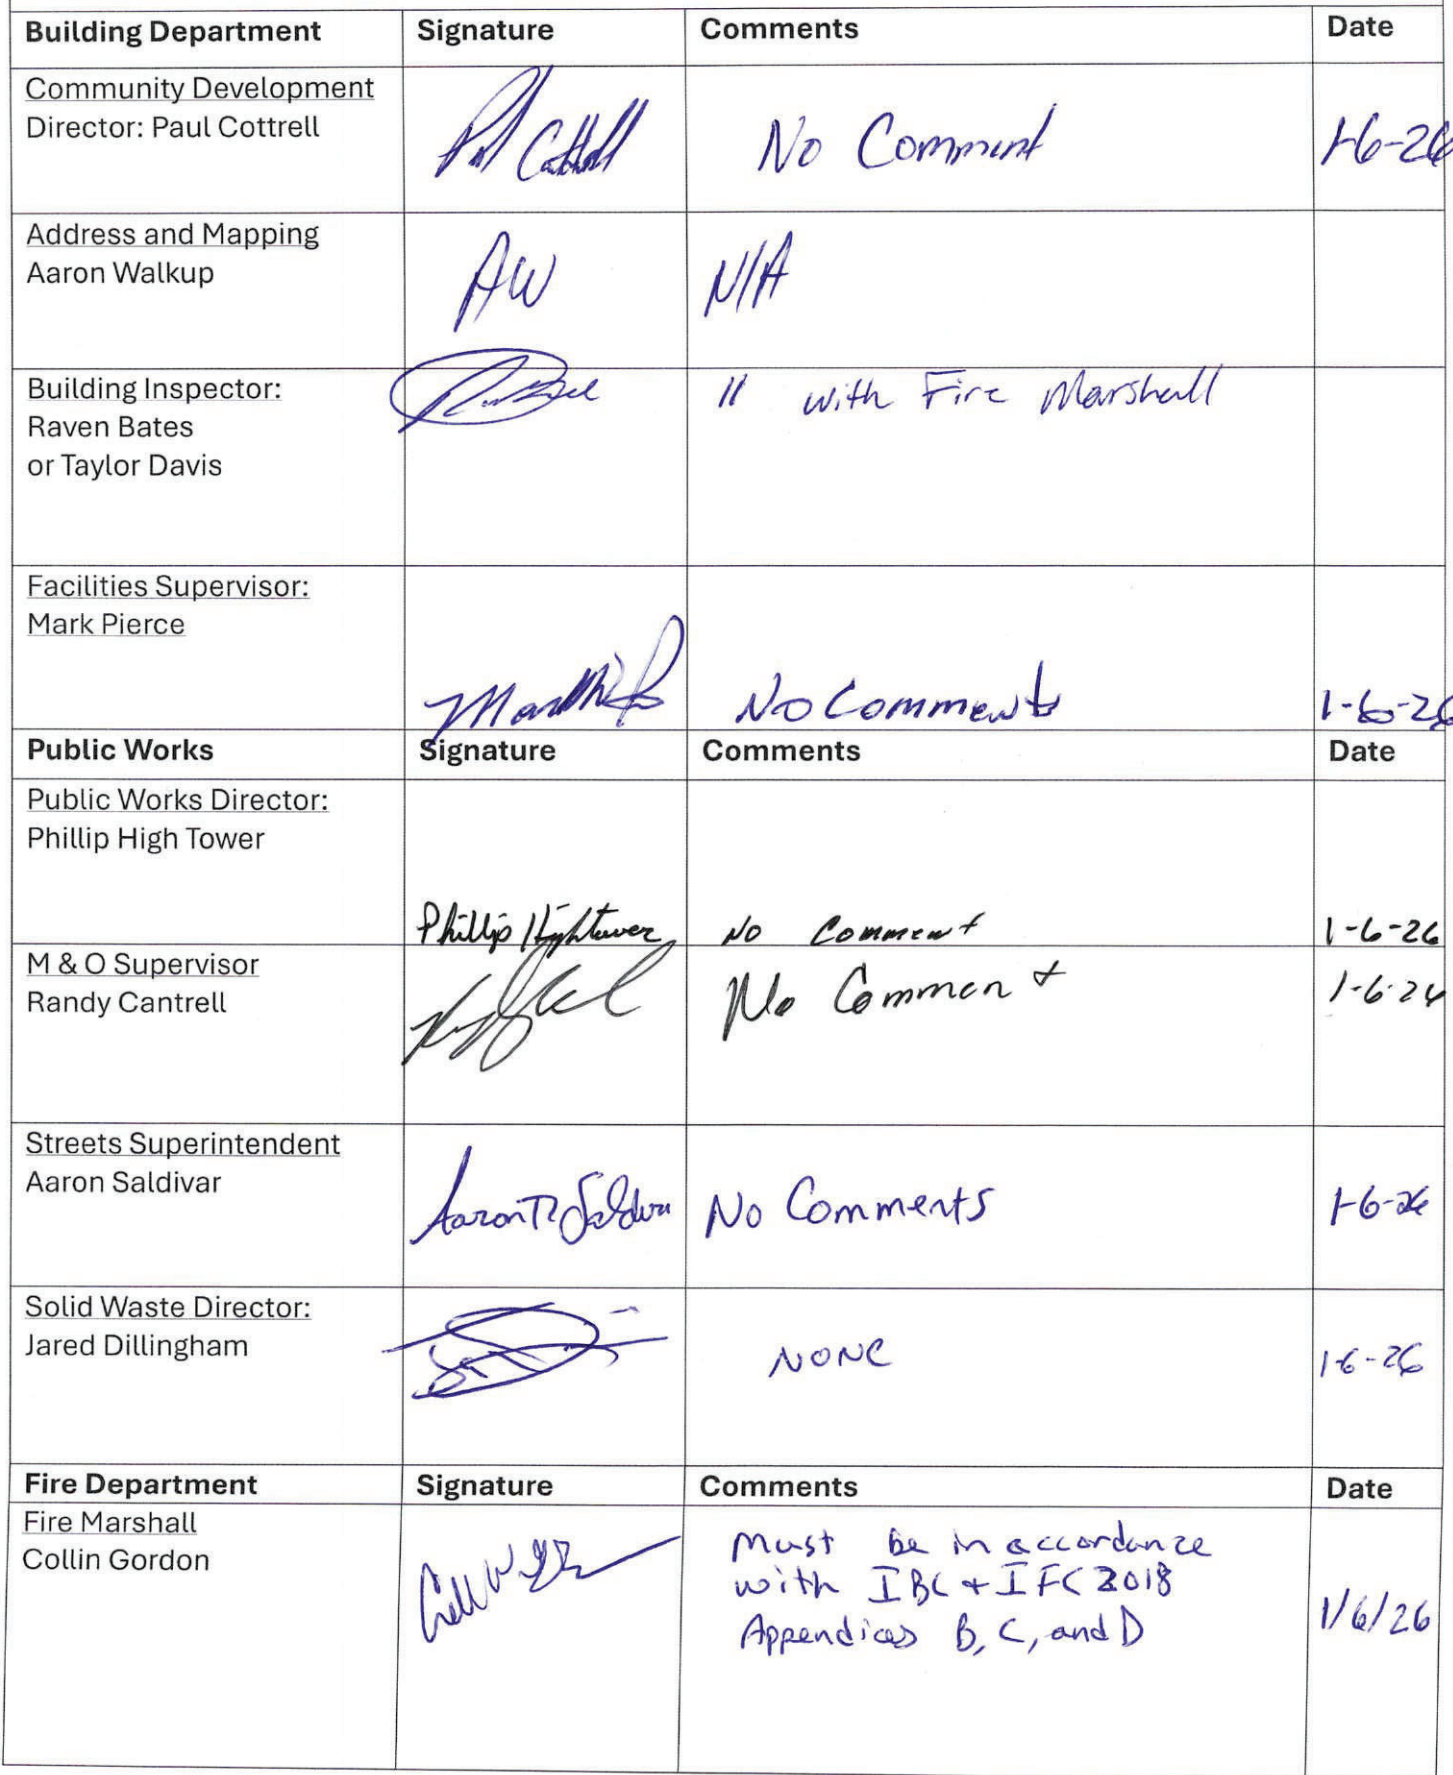 Building Department Signature Comments Date
Community Development
Director: Paul Cottrell
Paul Cottrell No Comment 1-6-26
Address and Mapping
Aaron Walkup
AW N/A
Building Inspector:
Raven Bates
or Taylor Davis
" with Fire Marshall
Facilities Supervisor:
Mark Pierce
No Comments 1-6-26
Public Works Signature Comments Date
Public Works Director:
Phillip High Tower
Phillip Hightower No Comment 1-6-26
M & O Supervisor
Randy Cantrell
No Comment 1-6-26
Streets Superintendent
Aaron Saldivar
Aaron R Saldivar No Comments 1-6-26
Solid Waste Director:
Jared Dillingham
NONE 1-6-26
Fire Department Signature Comments Date
Fire Marshall
Collin Gordon
Must be in accordance
with IBC + IFC 2018
Appendices B, C, and D
1/6/26